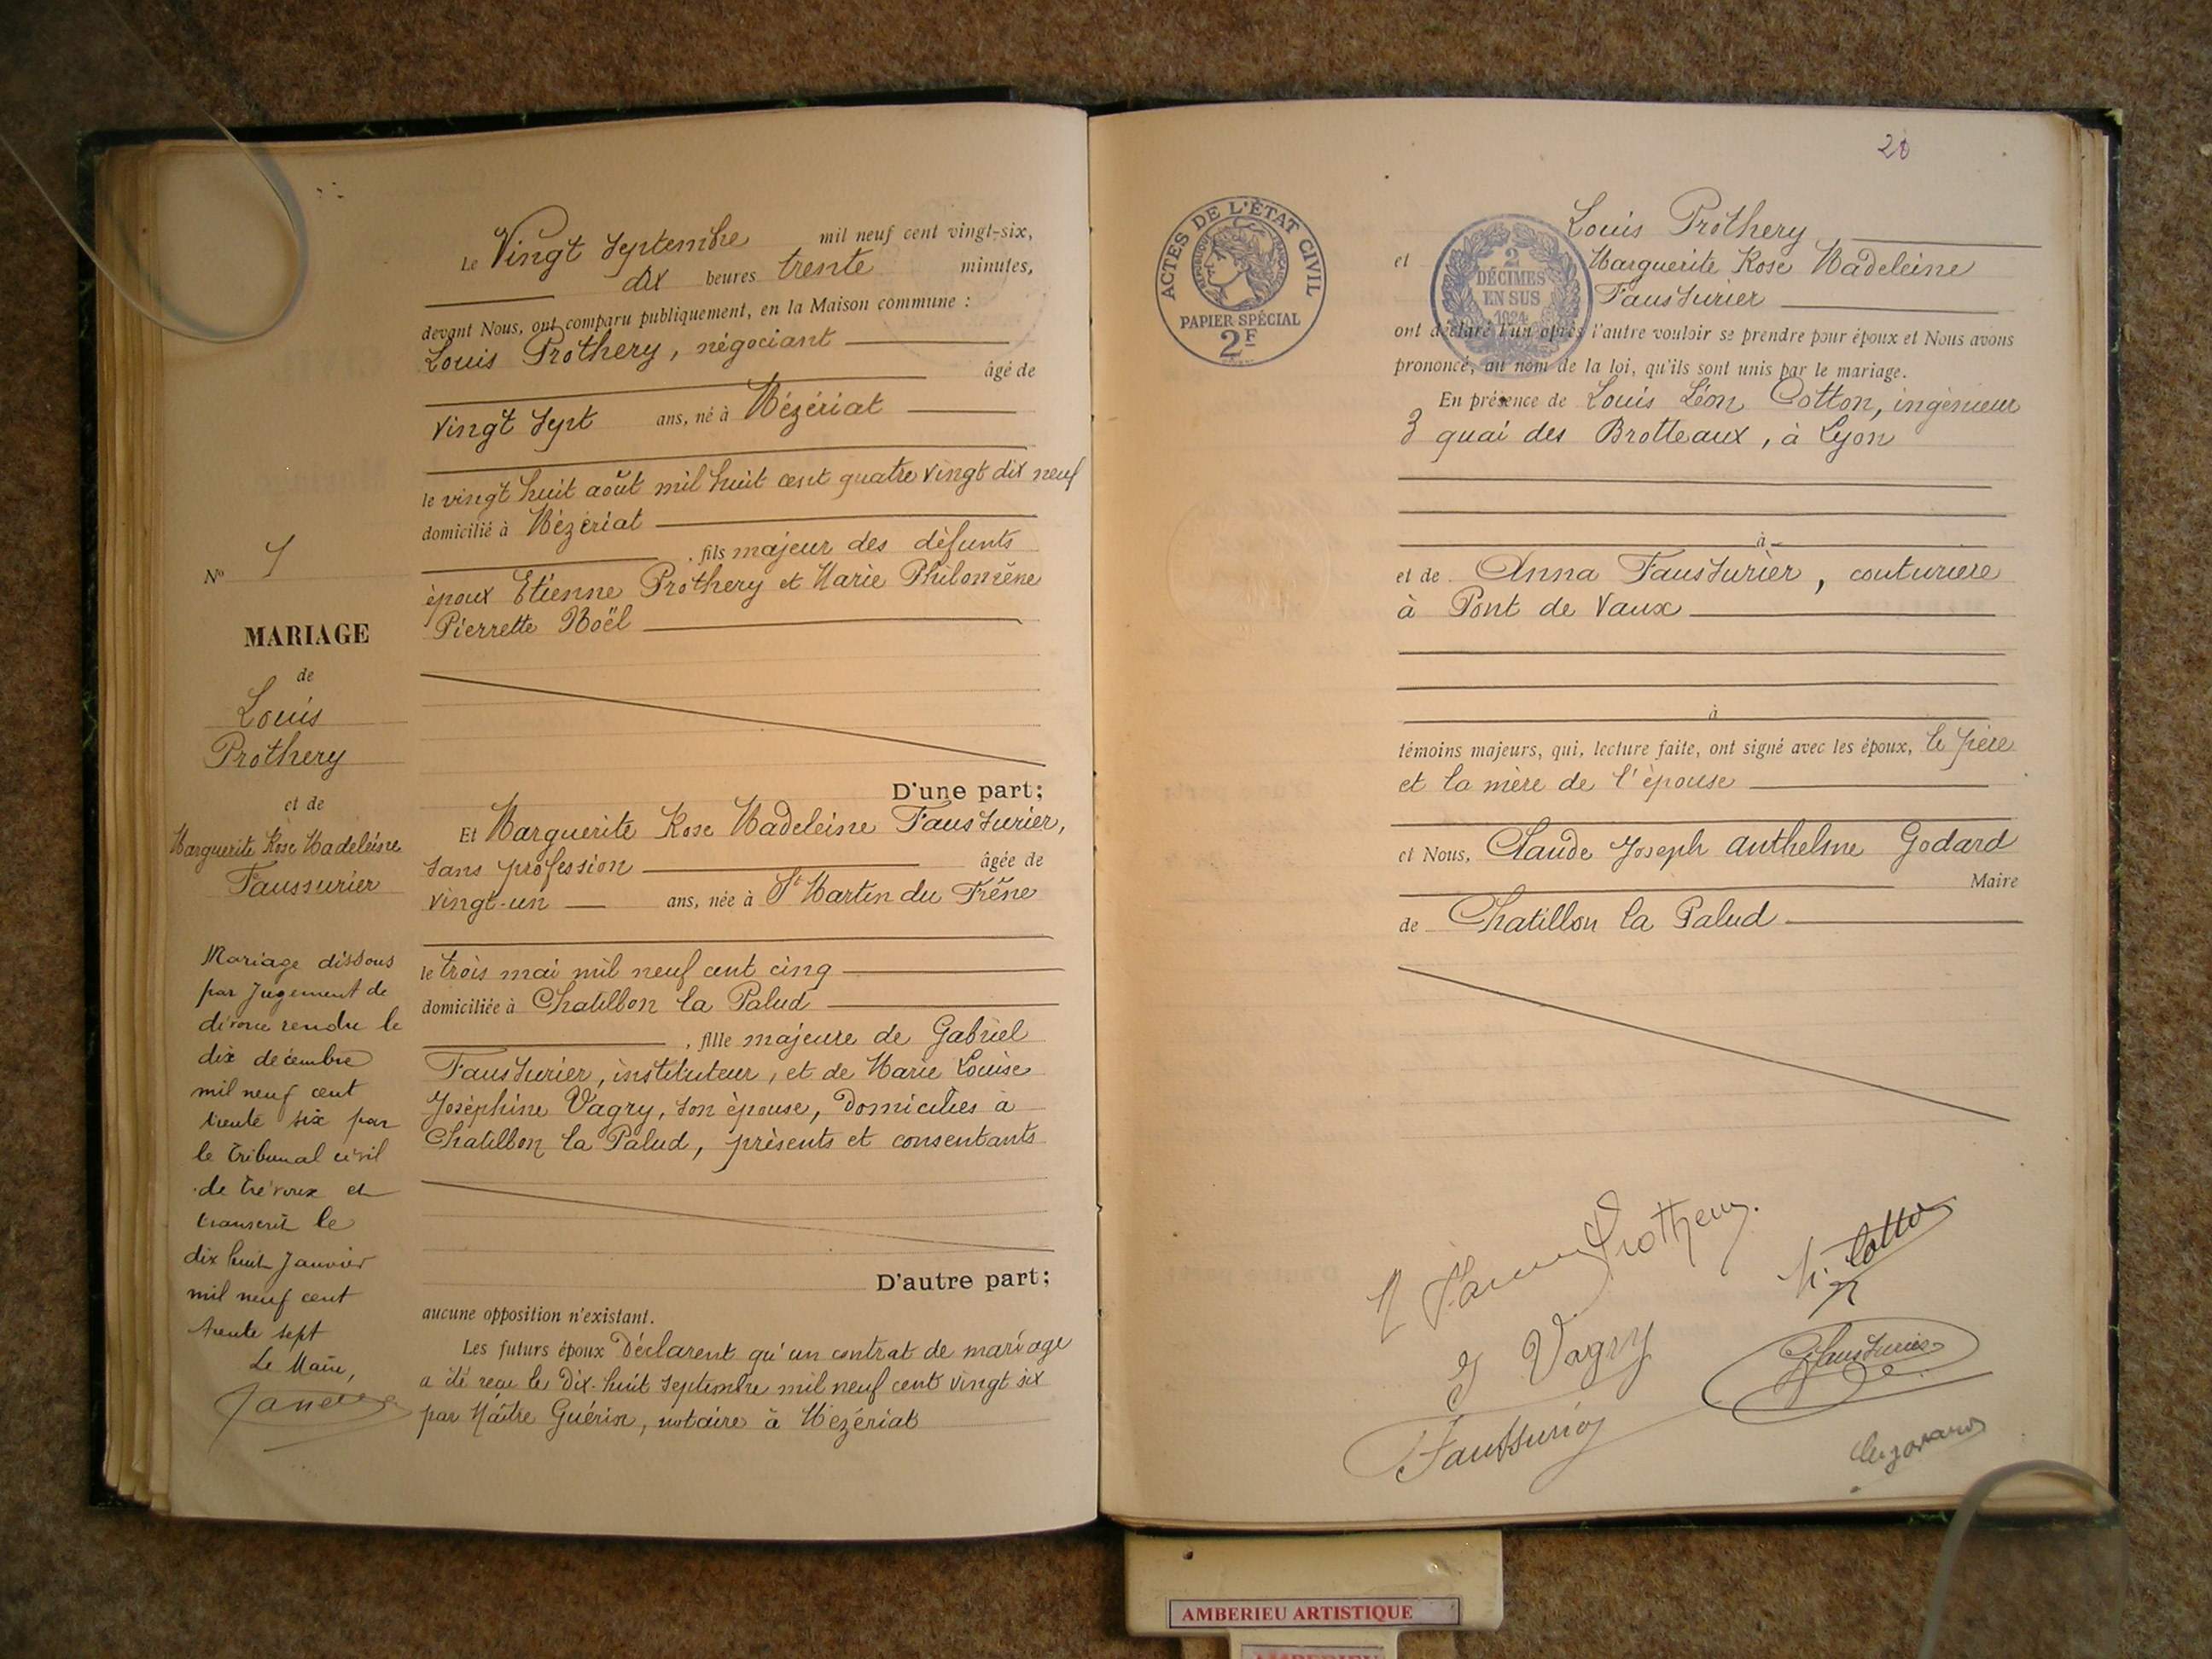 Nº 7
MARIAGE
de
Louis
Prothery
et de
Marguerite Rose Madeleine
Faussurier
Mariage dissous
par Jugement de
divorce rendu le
dix décembre
mil neuf cent
trente six par
le tribunal civil
de Trévoux et
transcrit le
dix huit Janvier
mil neuf cent
trente sept
Le Maire,
Le Vingt septembre mil neuf cent vingt-six,
dix heures trente minutes,
devant Nous, ont comparu publiquement, en la Maison commune :
Louis Prothery, négociant
âgé de
vingt sept ans, né à Mézériat
le vingt huit août mil huit cent quatre vingt dix neuf
domicilié à Mézériat
, fils majeur des défunts
époux Etienne Prothery et Marie Philomène
Pierrette Noël
D'une part;
Et Marguerite Rose Madeleine Faussurier,
sans profession âgée de
vingt-un ans, née à St Martin du Frêne
le trois mai mil neuf cent cinq
domiciliée à Chatillon la Palud
, fille majeure de Gabriel
Faussurier, instituteur, et de Marie Louise
Joséphine Vagry, son épouse, domiciliés à
Chatillon la Palud, présents et consentants
D'autre part;
aucune opposition n'existant.
Les futurs époux déclarent qu'un contrat de mariage
a été reçu le dix-huit septembre mil neuf cent vingt six
par Maître Guérin, notaire à Mézériat
28
ACTES DE L'ÉTAT CIVIL
RÉPUBLIQUE FRANÇAISE
PAPIER SPÉCIAL
2F
2
DÉCIMES
EN SUS
1924
Louis Prothery
et Marguerite Rose Madeleine
Faussurier
ont déclaré l'un après l'autre vouloir se prendre pour époux et Nous avons
prononcé, au nom de la loi, qu'ils sont unis par le mariage.
En présence de Louis Léon Cotton, ingénieur
3 quai des Brotteaux, à Lyon
à
et de Anna Faussurier, couturière
à Pont de Vaux
à
témoins majeurs, qui, lecture faite, ont signé avec les époux, le père
et la mère de l'épouse
et Nous, Claude Joseph Anthelme Godard
Maire
de Chatillon la Palud
Prothery.
L. Cotton
J Vagry
G Faussurier
Faussurier
AMBERIEU ARTISTIQUE
AMBERIEU